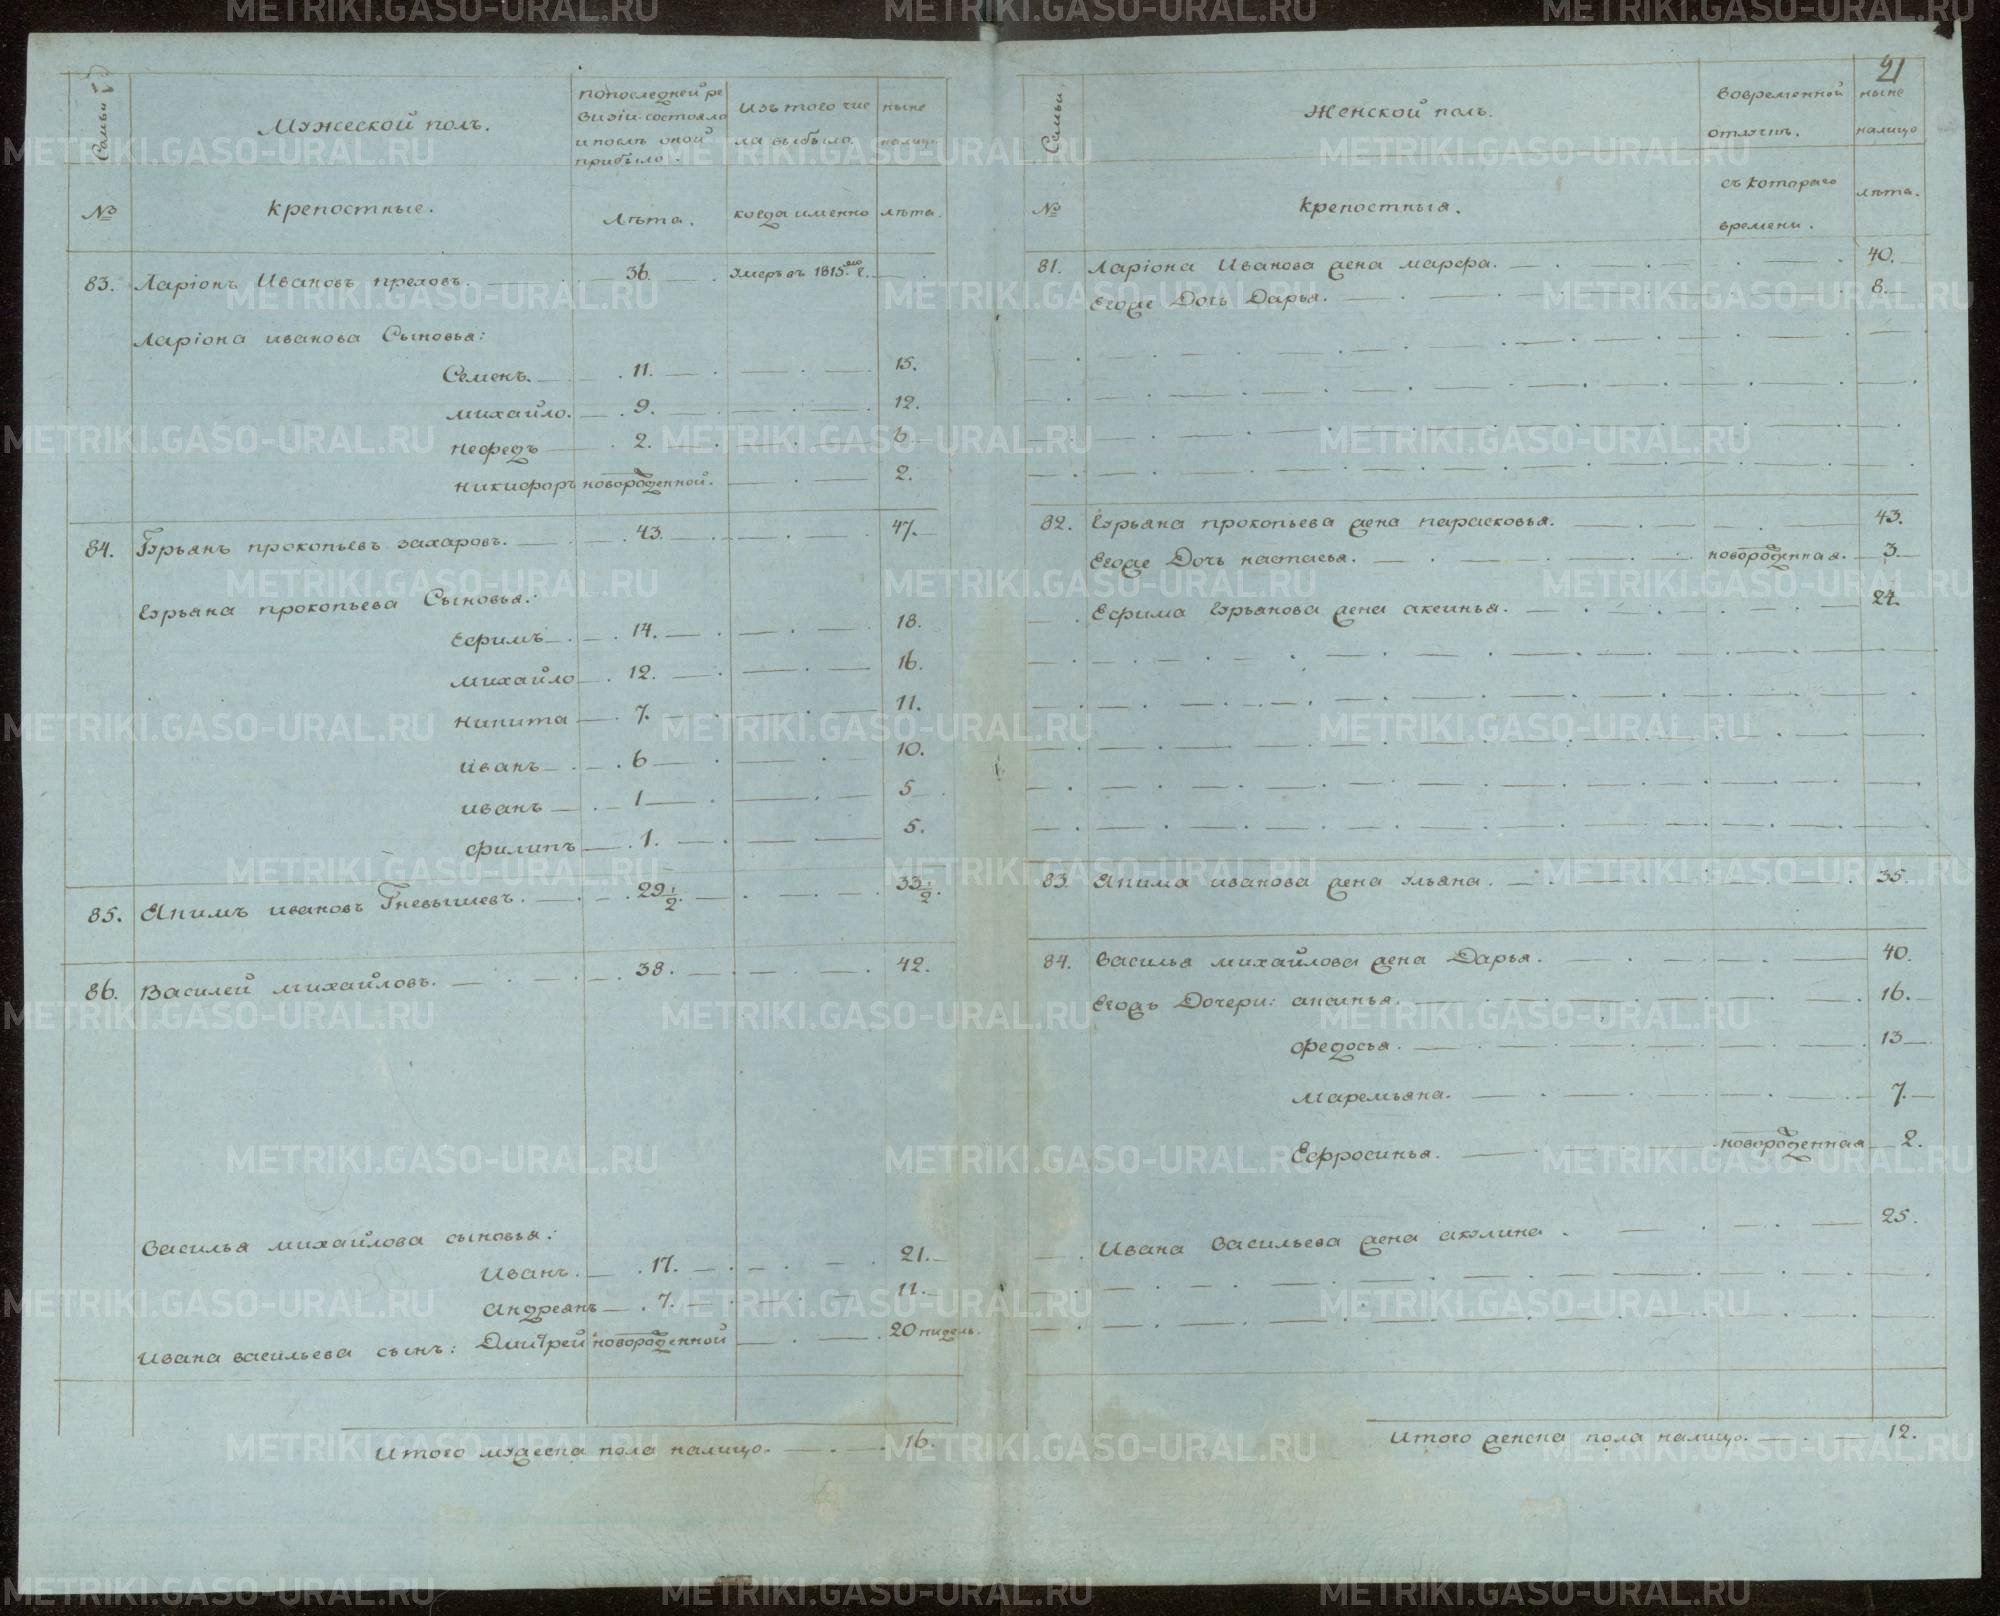 Семьи
Мужеской полъ.
попоследней ре
визіи состояло
и послѣ оной
прибыло.
изъ того чис
ла выбыло
ныне
налицо
№
крепостные.
Лѣта.
когда именно
лѣта.
83. Ларіонъ Ивановъ преловъ. 36. Умеръ въ 1815мъ г.
Ларіона иванова Сыновья:
Семенъ. 11. 15.
михайло. 9. 12.
нефедъ 2. 6
никифоръ новорожденной. 2.
84. Гурьянъ прокопьевъ захаровъ. 43. 47.
Гурьяна прокопьева Сыновья:
Ефимъ 14. 18.
михайло 12. 16.
никита 7. 11.
иванъ 6 10.
иванъ 1 5
филипъ 1. 5.
85. Якимъ ивановъ Гневышевъ. 29 1/2. 33 1/2.
86. Василей михайловъ. 38. 42.
Василья михайлова сыновья:
Иванъ. 17. 21.
Андреянъ 7. 11.
Ивана васильева сынъ: Дмитрей новорожденной 20 нидель.
Итого мужеска пола налицо. 16.
21
Семьи
Женской полъ.
вовременной
отлучке.
ныне
налицо
№
крепостныя.
съ котораго
времени.
лѣта.
81. Ларіона Иванова жена марфа. 40.
Егоже Дочь Дарья. 8.
82. Гурьяна прокопьева жена парасковья. 43.
Егоже Дочь настасья. новорожденная. 3.
Ефима Гурьянова жена аксинья. 24.
83. Якима иванова жена ульяна. 35.
84. Василья михайлова жена Дарья. 40.
Егожъ Дочери: аксинья. 16.
федосья. 13
маремьяна. 7.
Ефросинья. новорожденная 2.
Ивана Васильева жена акулина. 25.
Итого женска пола налицо. 12.